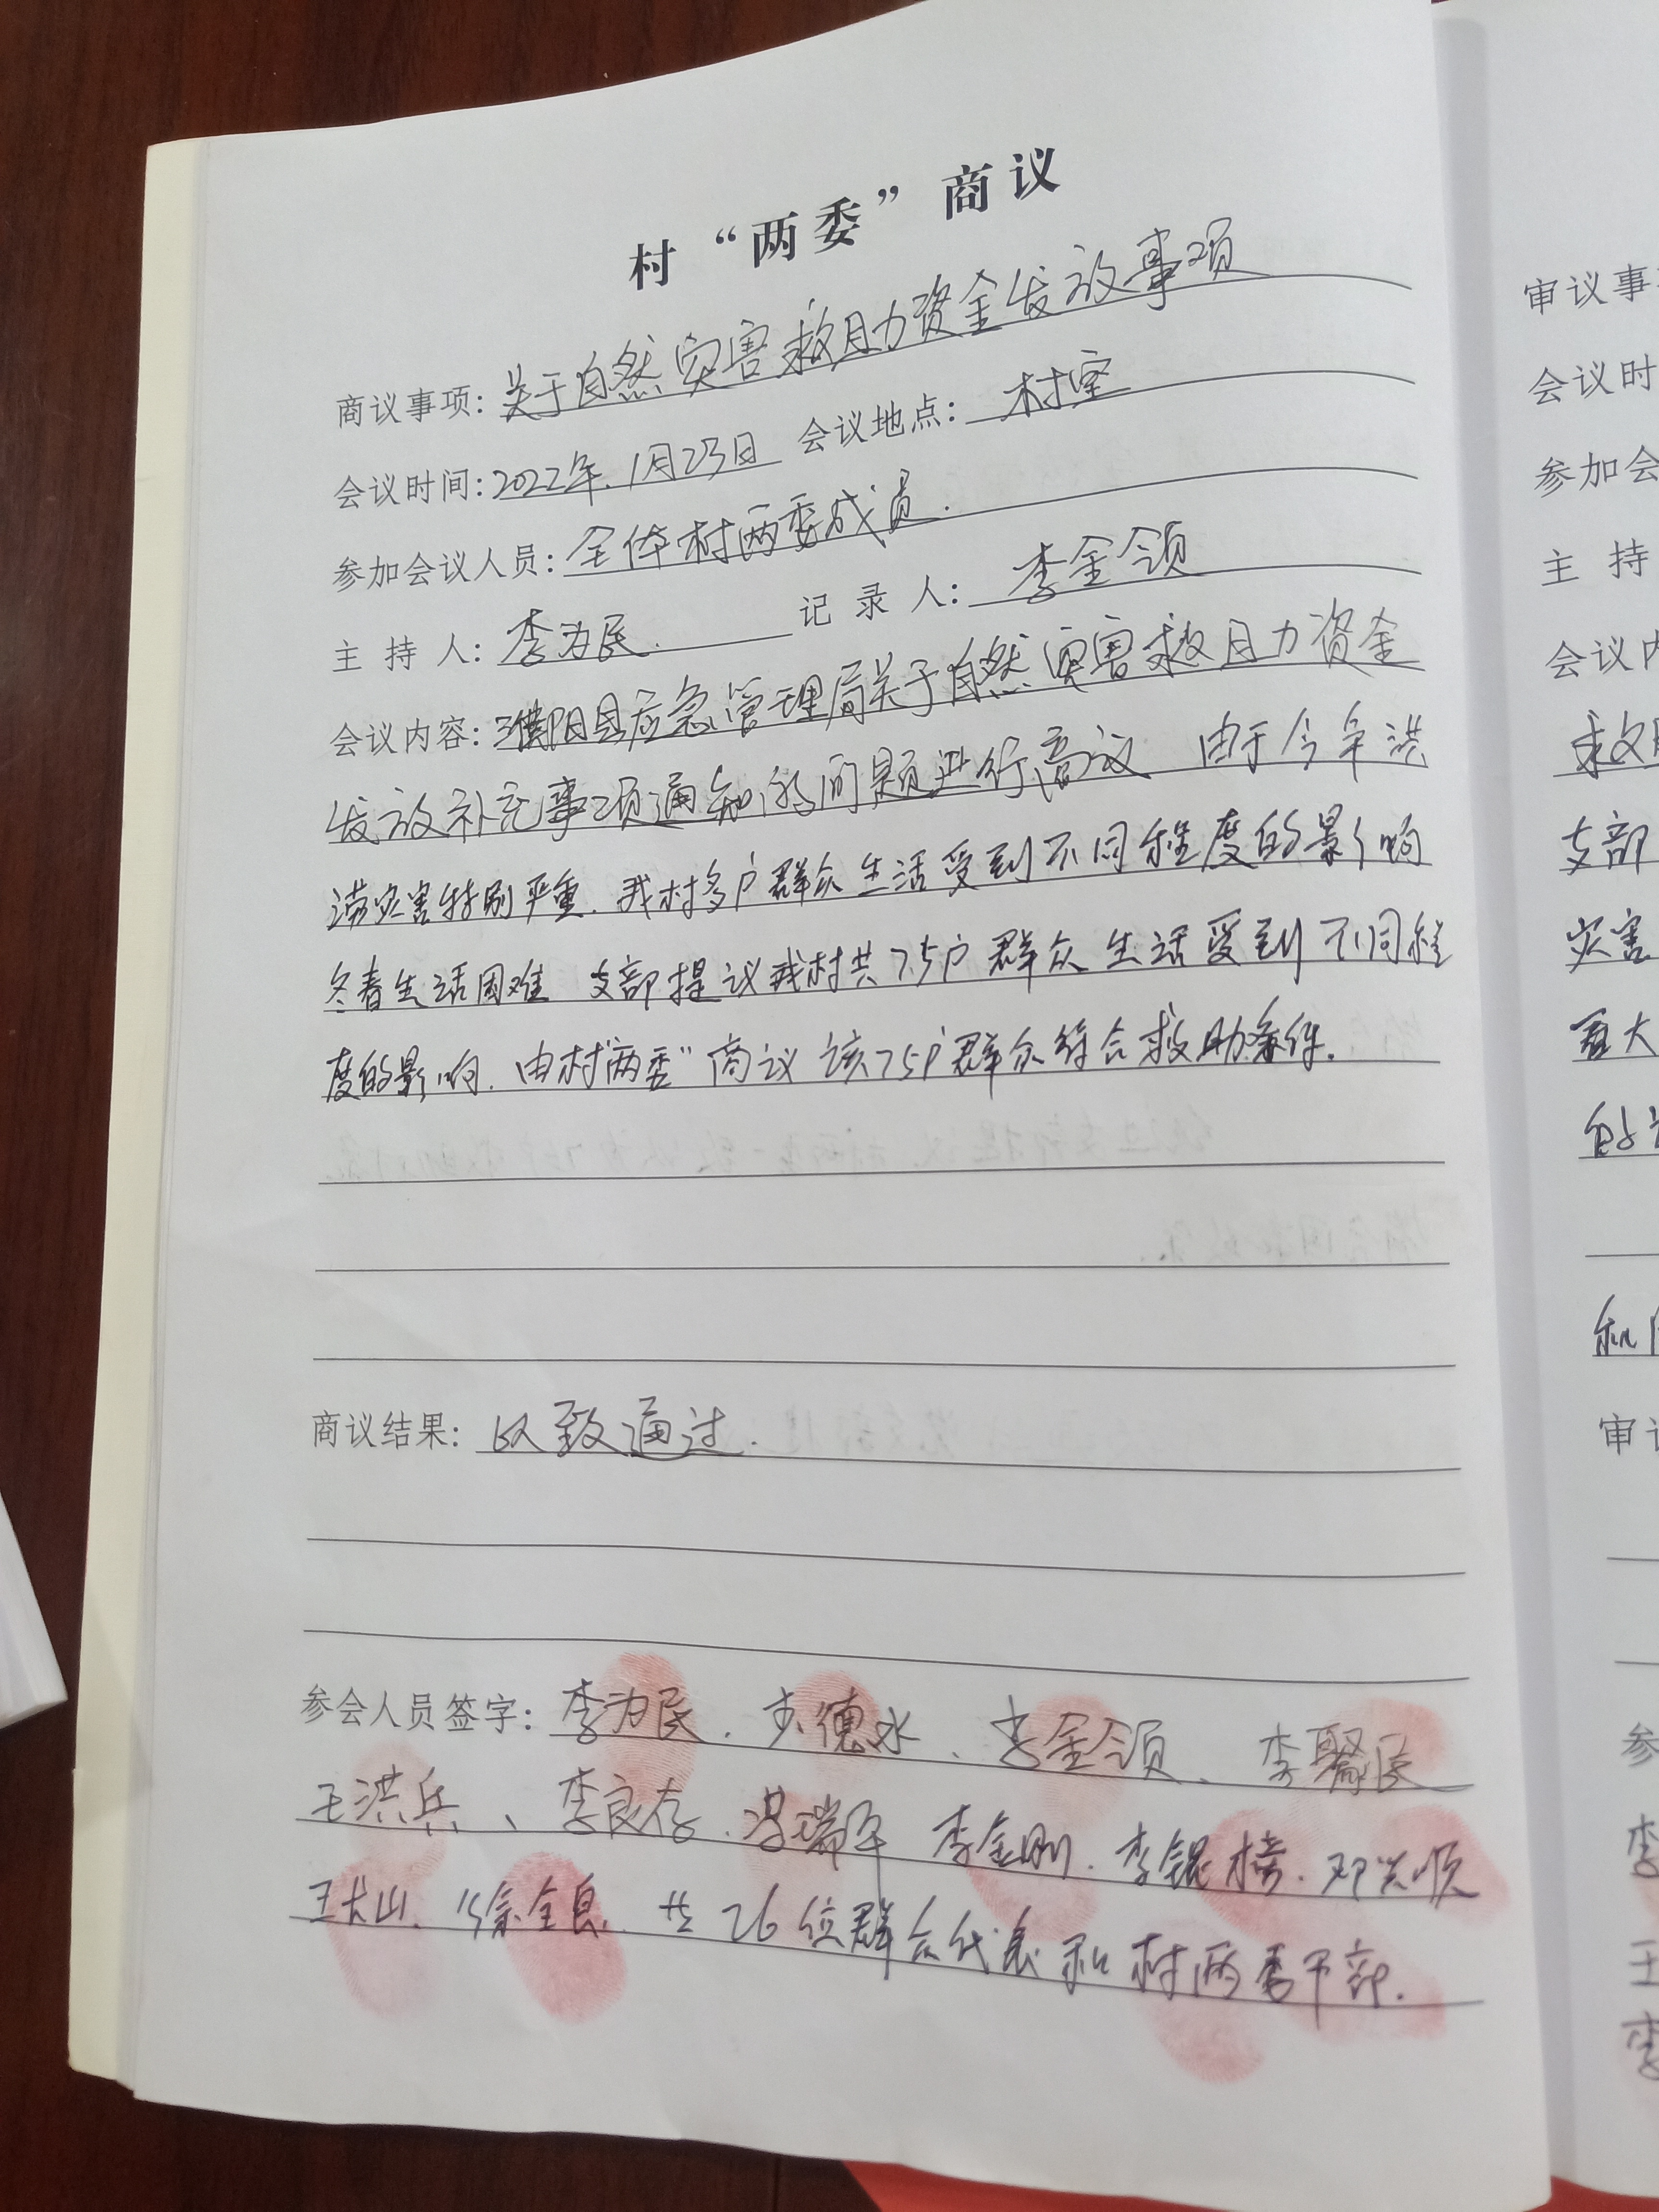 村“两委”商议
商议事项：关于自然灾害救助资金发放事项
会议时间：2022年.1月23日 会议地点：村室
参加会议人员：全体村两委成员.
主 持 人：李为民. 记 录 人：李金领
会议内容：濮阳县应急管理局关于自然灾害救助资金
发放补充事项通知的问题进行商议 由于今年洪
涝灾害特别严重.我村多户群众生活受到不同程度的影响
冬春生活困难 支部提议我村共75户群众生活受到不同程
度的影响.由村“两委”商议该75户群众符合救助条件.
商议结果：以致通过.
参会人员签字：李为民. 李德水、李金领、李聚民
王洪兵、李良存. 瑞军 李金刚. 李锟榜. 邓兴顺
王大山. 徐全良. 共26位群众代表和村两委干部.
审议事
会议时
参加会
主 持
会议内
救助
支部
灾害
重大
的
和
审议
参
李
王
李